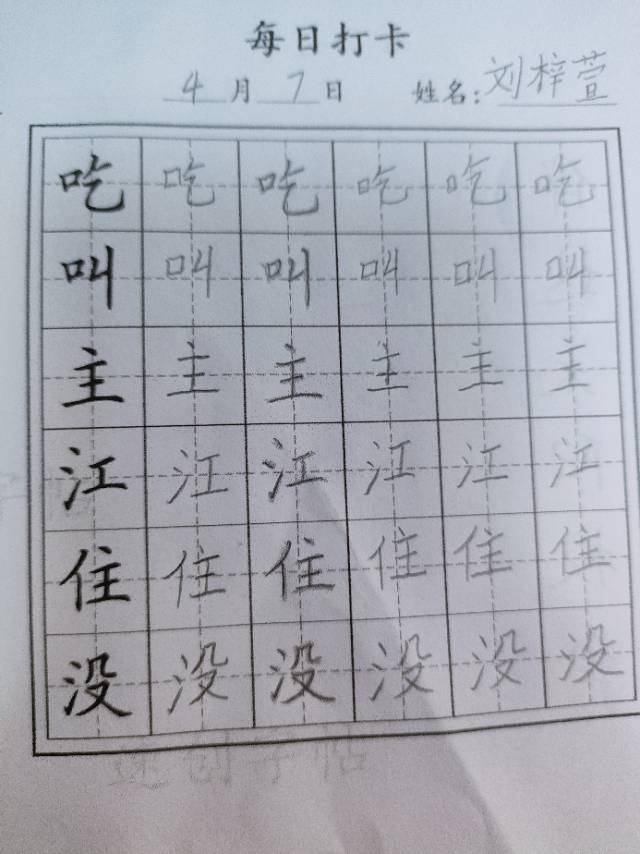 每日打卡
4月7日 姓名:刘梓萱
吃吃吃吃吃吃
叫叫叫叫叫叫
主主主主主主
江江江江江江
住住住住住住
没没没没没没
速创字帖